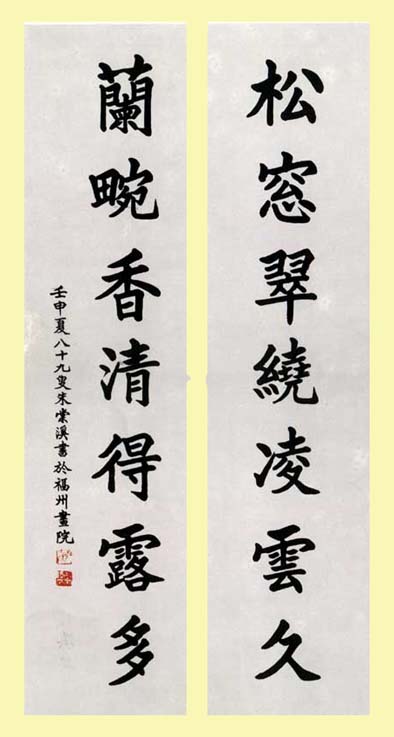 松窓翠繞凌雲久
蘭畹香清得露多
壬申夏八十九叟朱棠溪書於福州畫院